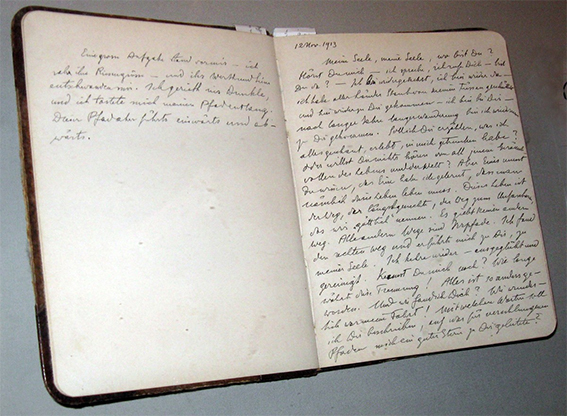 Eine grosse Aufgabe stand vor mir – ich
sah ihr – und ihr Wert und Sinn
entschwand mir. Ich geriet ins Dunkle,
und ich tastete mich meinen Pfad entlang.
Dein Pfad aber führte einwärts und ab-
wärts.
12 Nov. 1913
Meine Seele, meine Seele, wo bist Du?
Hörst Du mich – ich spreche, ich rufe Dich – bist
Du da? – Ich bin wiedergekehrt, ich bin wieder da –
ich habe aller Länder Staub von meinen Füssen geschüttelt
und bin zu Dir gekommen – ich bin bei Dir –
nach langer Jahre langer Wanderung bin ich wieder
zu Dir gekommen. Soll ich Dir erzählen, was ich
alles geschaut, erlebt, in mich getrunken habe?
oder willst Du nichts hören von all jenem
vollen des Lebens und der Welt? Aber Eines musst
Du wissen, das Eine habe ich gelernt, dass man
dieses Leben leben muss. Dieses Leben ist
der Weg, der längst gesuchte, der Weg zum Unfassbaren
das wir göttlich nennen. Es giebt keinen andern
Weg. Alle andern Wege sind Irrpfade. Ich fand
den rechten Weg und er führte mich zu Dir, zu
meiner Seele. Ich kehre wieder – ausgeglüht und
gereinigt. Kennst Du mich noch? Wie lange
währte die Trennung! Alles ist so anders ge-
worden. Und wie fand ich Dich? Wie wunder-
lich war meine Fahrt! Mit welchen Worten soll
ich Dir beschreiben, auf was für verschlungenen
Pfaden mich ein guter Stern zu Dir geleitete?